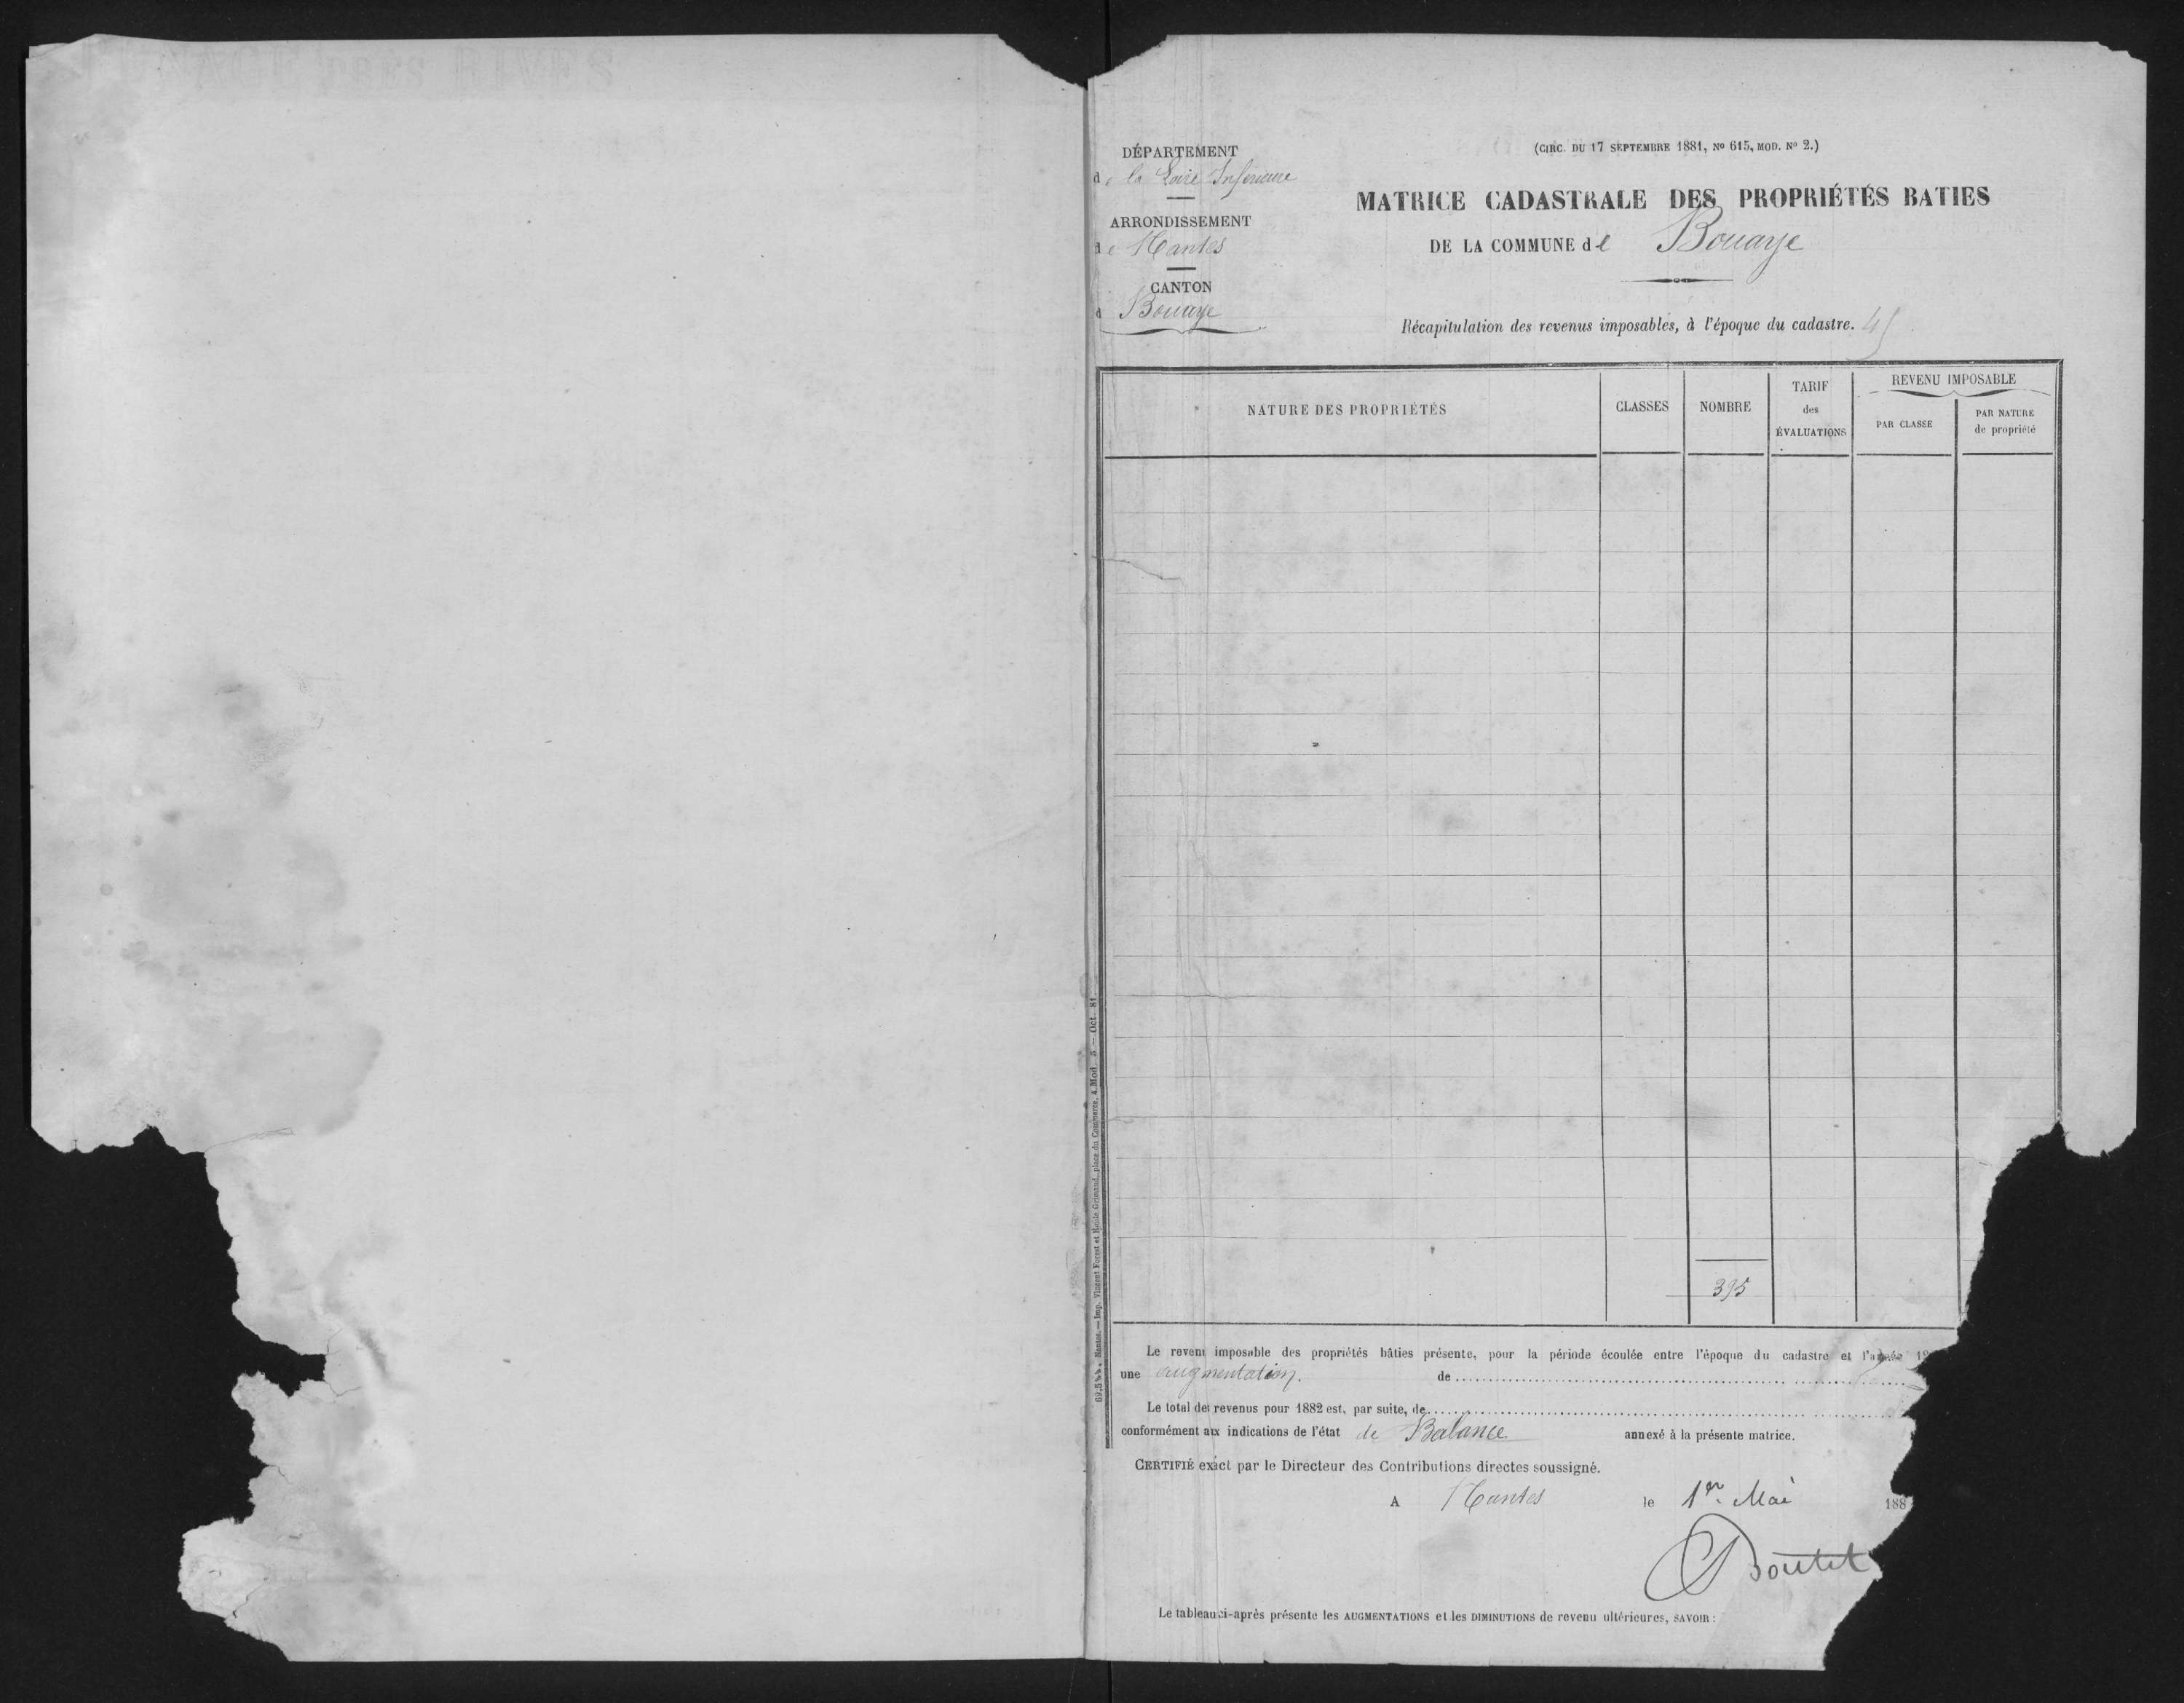 DÉPARTEMENT
de la Loire Inférieure
ARRONDISSEMENT
de Nantes
CANTON
d Bouaye
(CIRC. DU 17 SEPTEMBRE 1881, No 615, MOD. No 2.)
MATRICE CADASTRALE DES PROPRIÉTÉS BATIES
DE LA COMMUNE de Bouaye
Récapitulation des revenus imposables, à l'époque du cadastre.
NATURE DES PROPRIÉTÉS
CLASSES
NOMBRE
TARIF
des
ÉVALUATIONS
REVENU IMPOSABLE
PAR CLASSE
PAR NATURE
de propriété
395
Le revenu imposable des propriétés bâties présente, pour la période écoulée entre l'époque du cadastre et l'année 18
une augmentation. de
Le total des revenus pour 1882 est, par suite, de
conformément aux indications de l'état de Balance annexé à la présente matrice.
CERTIFIÉ exact par le Directeur des Contributions directes soussigné.
A Nantes le 1er Mai 188
Boutet
Le tableau ci-après présente les AUGMENTATIONS et les DIMINUTIONS de revenu ultérieures, SAVOIR :
Nantes. — Imp. Vincent Forest et Emile Grimaud, place du Commerce, 4. Mod. 3 — Oct. 81